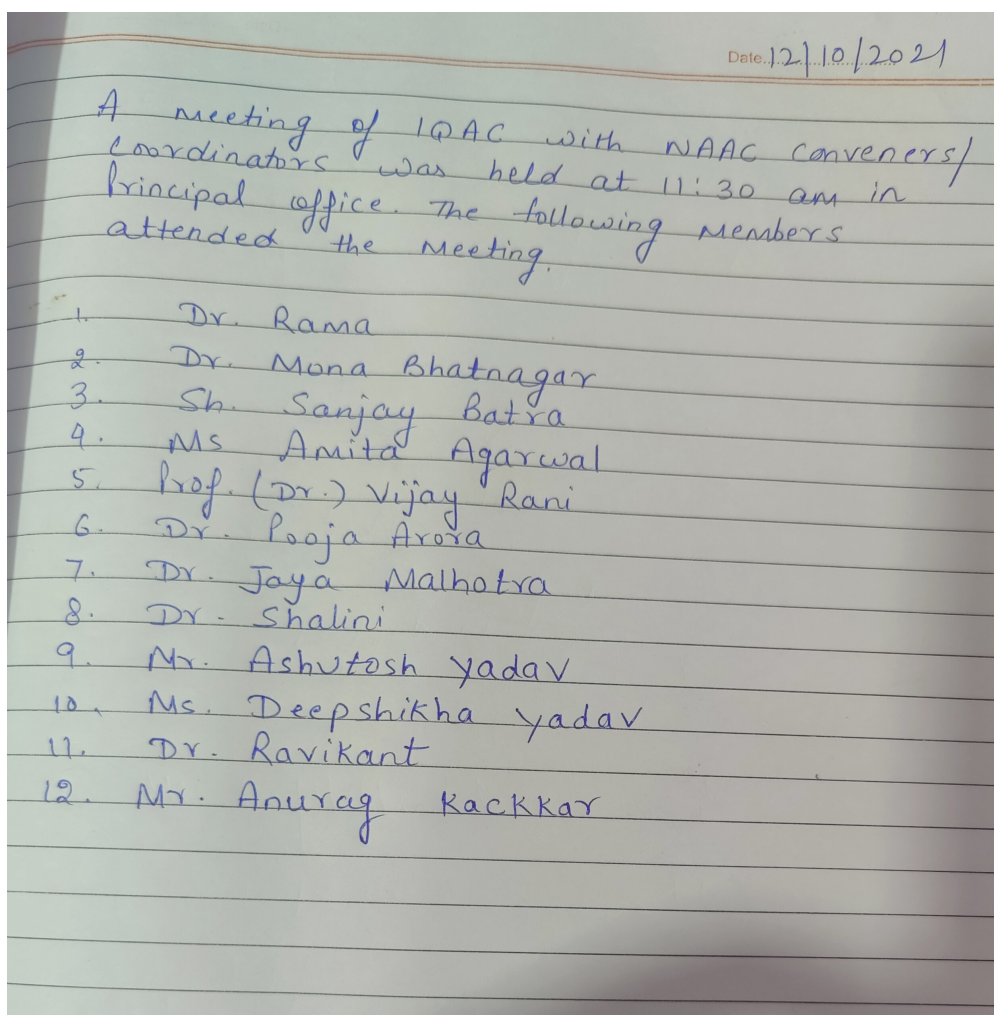 Date. 12/10/2021
A meeting of IQAC with NAAC conveners/
Coordinators was held at 11:30 am in
Principal office. The following members
attended the Meeting.
1. Dr. Rama
2. Dr. Mona Bhatnagar
3. Sh. Sanjay Batra
4. Ms Amita Agarwal
5. Prof. (Dr.) Vijay Rani
6. Dr. Pooja Arora
7. Dr. Jaya Malhotra
8. Dr. Shalini
9. Mr. Ashutosh Yadav
10. Ms. Deepshikha Yadav
11. Dr. Ravikant
12. Mr. Anurag Kackkar